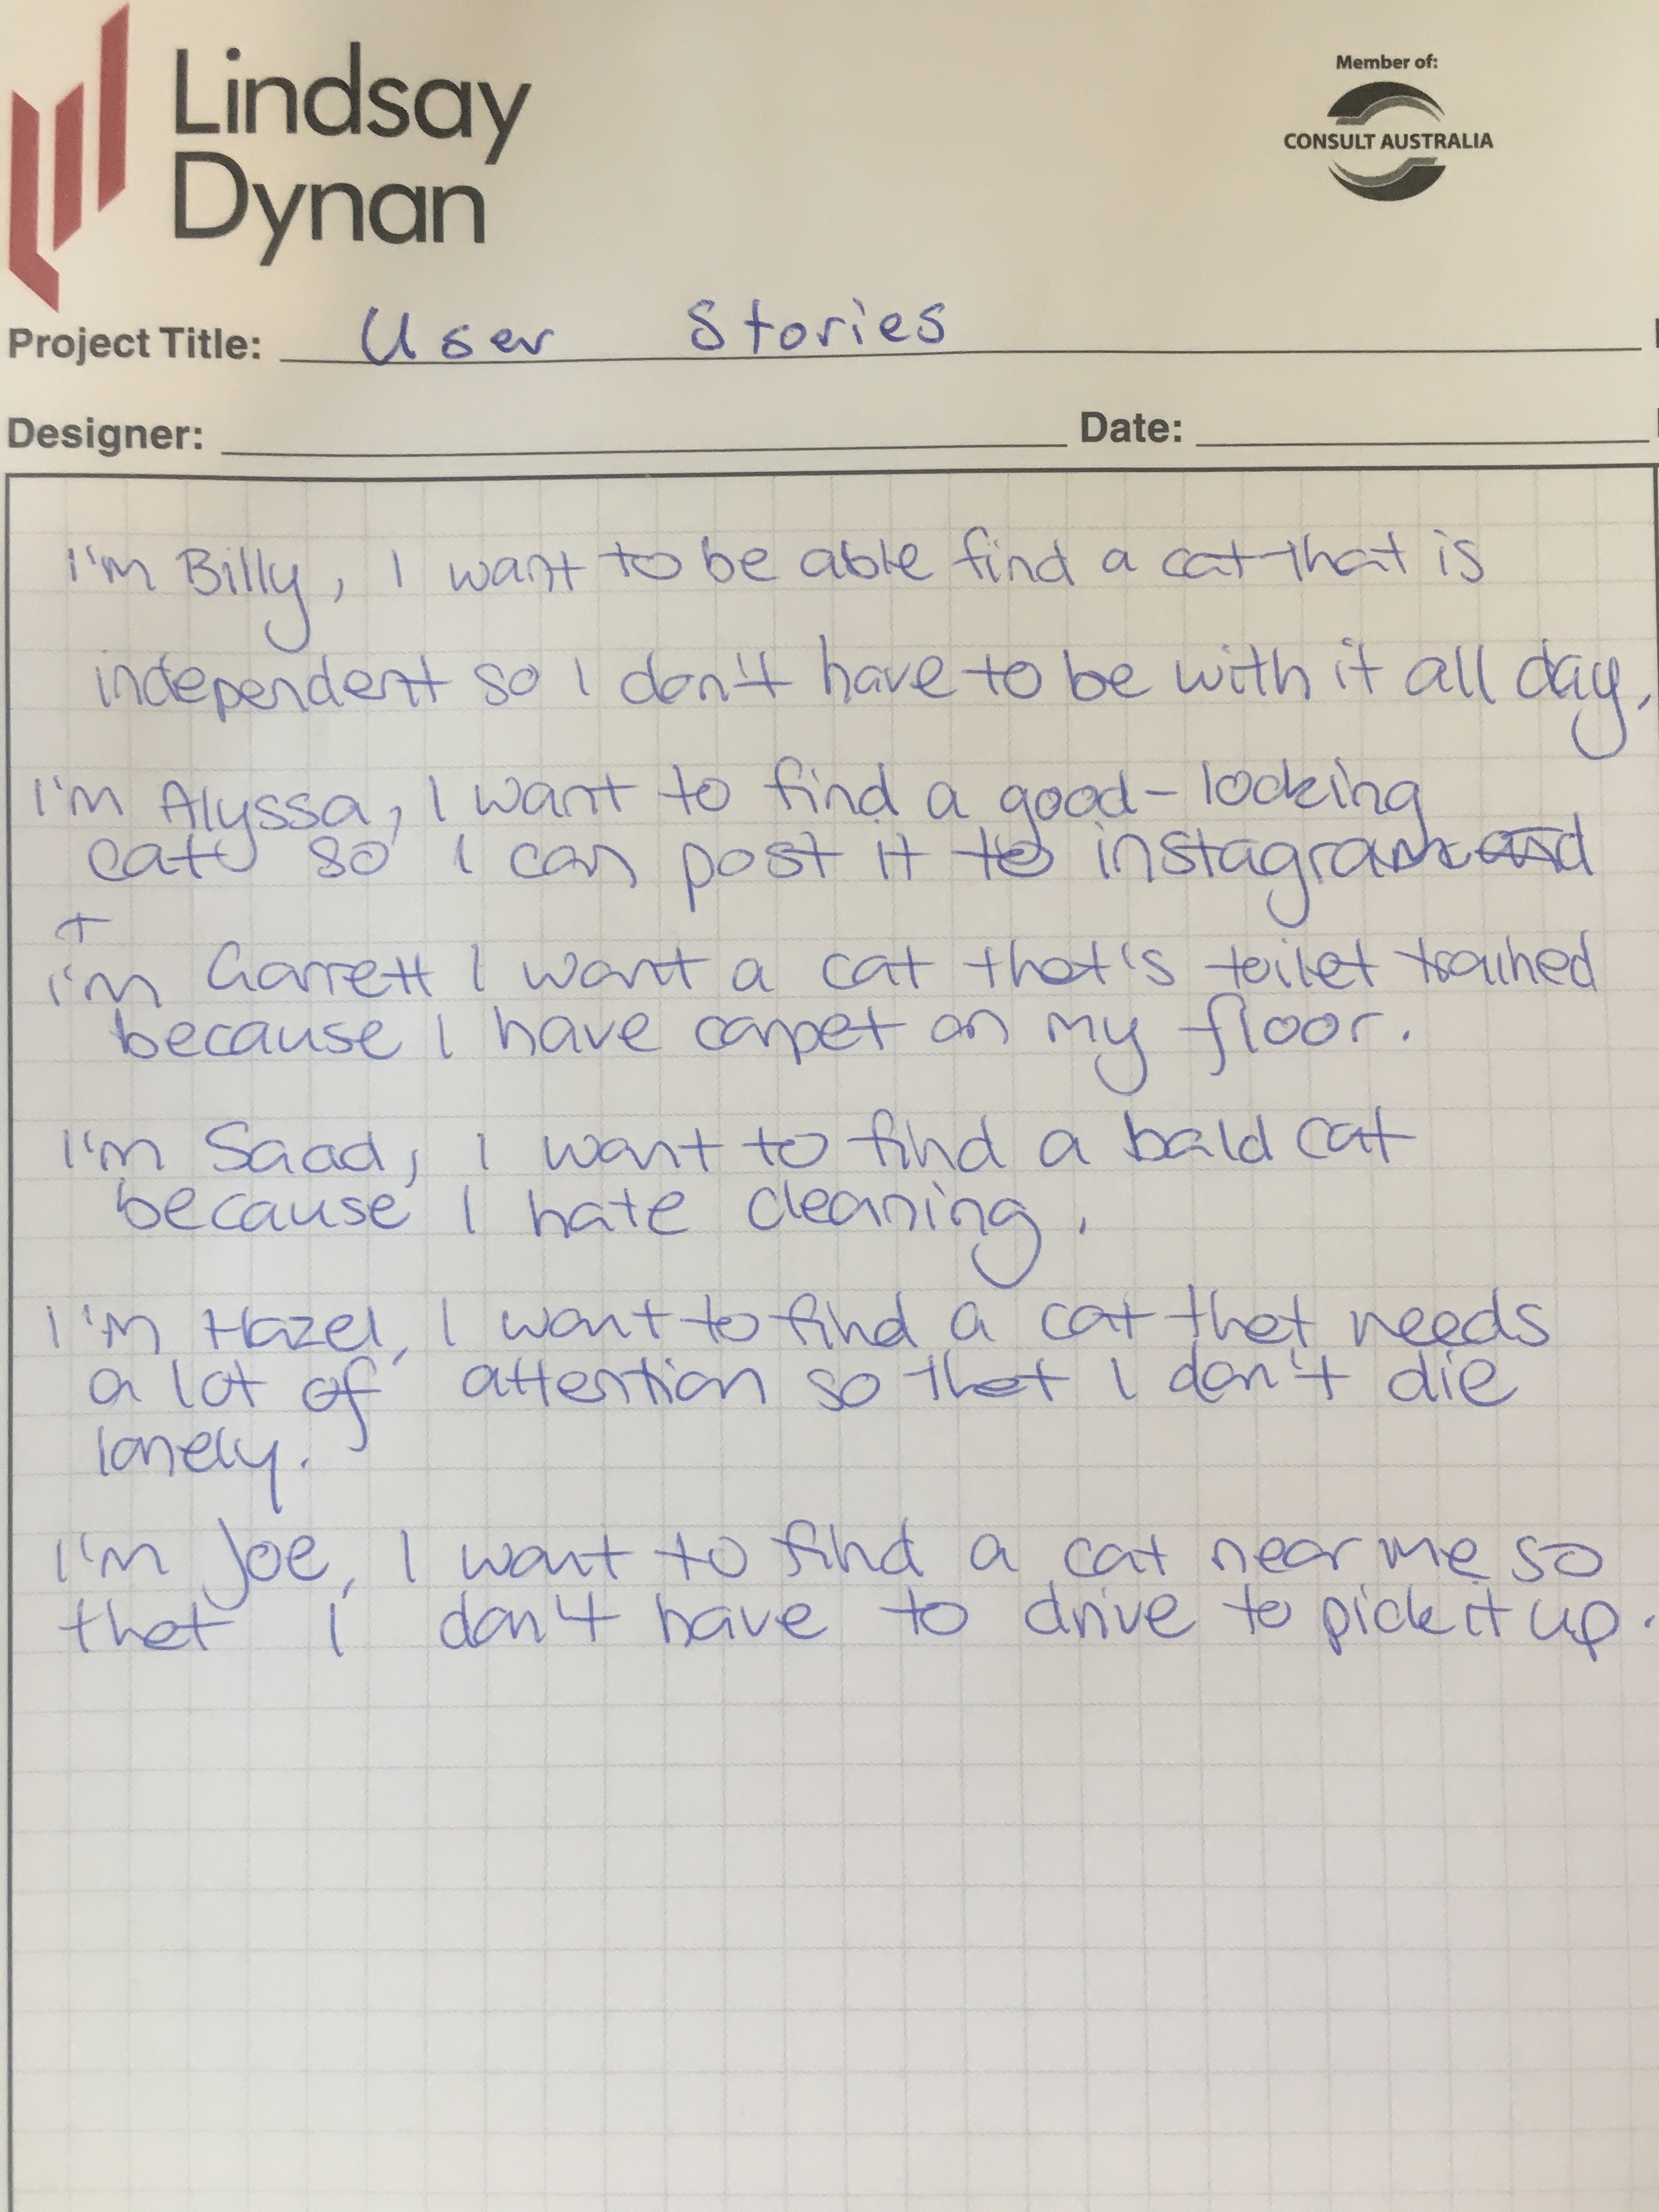 Lindsay
Dynan
Member of:
CONSULT AUSTRALIA
Project Title: User Stories
Designer: Date:
I'm Billy, I want to be able find a cat that is
independent so I don't have to be with it all day.
I'm Alyssa, I want to find a good-looking
cat so I can post it to instagram and
I'm Garrett I want a cat that's toilet trained
because I have carpet on my floor.
I'm Saad, I want to find a bald cat
because I hate cleaning.
I'm Hazel, I want to find a cat that needs
a lot of attention so that I don't die
lonely.
I'm Joe, I want to find a cat near me so
that I don't have to drive to pick it up.